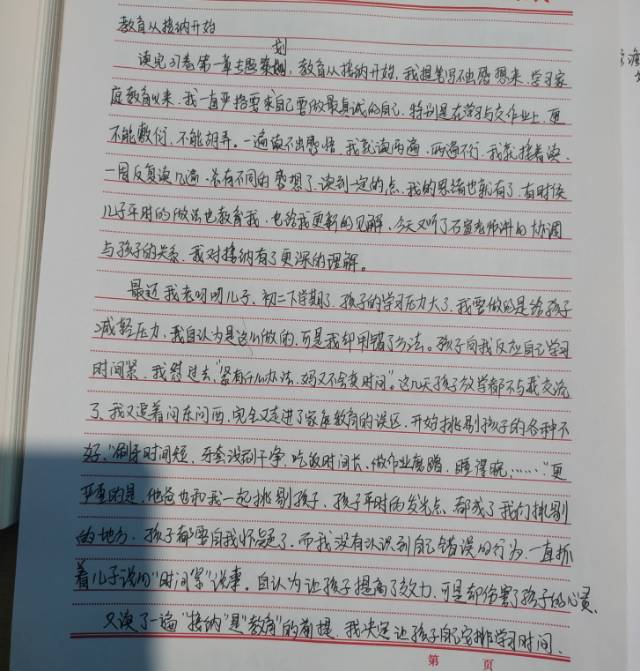 教育从接纳开始
划
读完习卷第一章专题策划,教育从接纳开始,我提笔写不出感想来,学习家
庭教育以来,我一直严格要求自己要做最真诚的自己,特别是在学习与交作业上,更
不能敷衍,不能胡弄。一遍读不出感悟,我就读两遍,两遍不行,我就接着读,
一周反复读几遍,总有不同的感想了,读到一定的点,我的思绪也就有了,有时侯
儿子平时的做法也教育我,也给我更新的见解,今天又听了石宣老师讲的协调
与孩子的关系,我对接纳有了更深的理解。
最近我老叨叨儿子,初二下学期了,孩子的学习压力大了,我要做的是给孩子
减轻压力,我自认为是这么做的,可是我却用错了方法。孩子向我反应自己学习
时间紧,我怼过去,“紧有什么办法,妈又不会变时间”。这几天孩子放学都不与我交流
了,我又逞着问东问西,完全又走进了家庭教育的误区,开始挑剔孩子的各种不
好,“刷牙时间短,牙套没刷干净,吃饭时间长,做作业磨蹭,睡得晚,……”更
严重的是,他爸也和我一起挑剔孩子,孩子平时的发光点,都成了我们挑剔
的地方,孩子都要自我怀疑了,而我没有认识到自己错误的行为,一直抓
着儿子说的“时间紧”说事,自认为让孩子提高了效力,可是却伤害了孩子的心灵。
又读了一遍“接纳”是“教育”的前提,我决定让孩子自己安排学习时间,
第 页